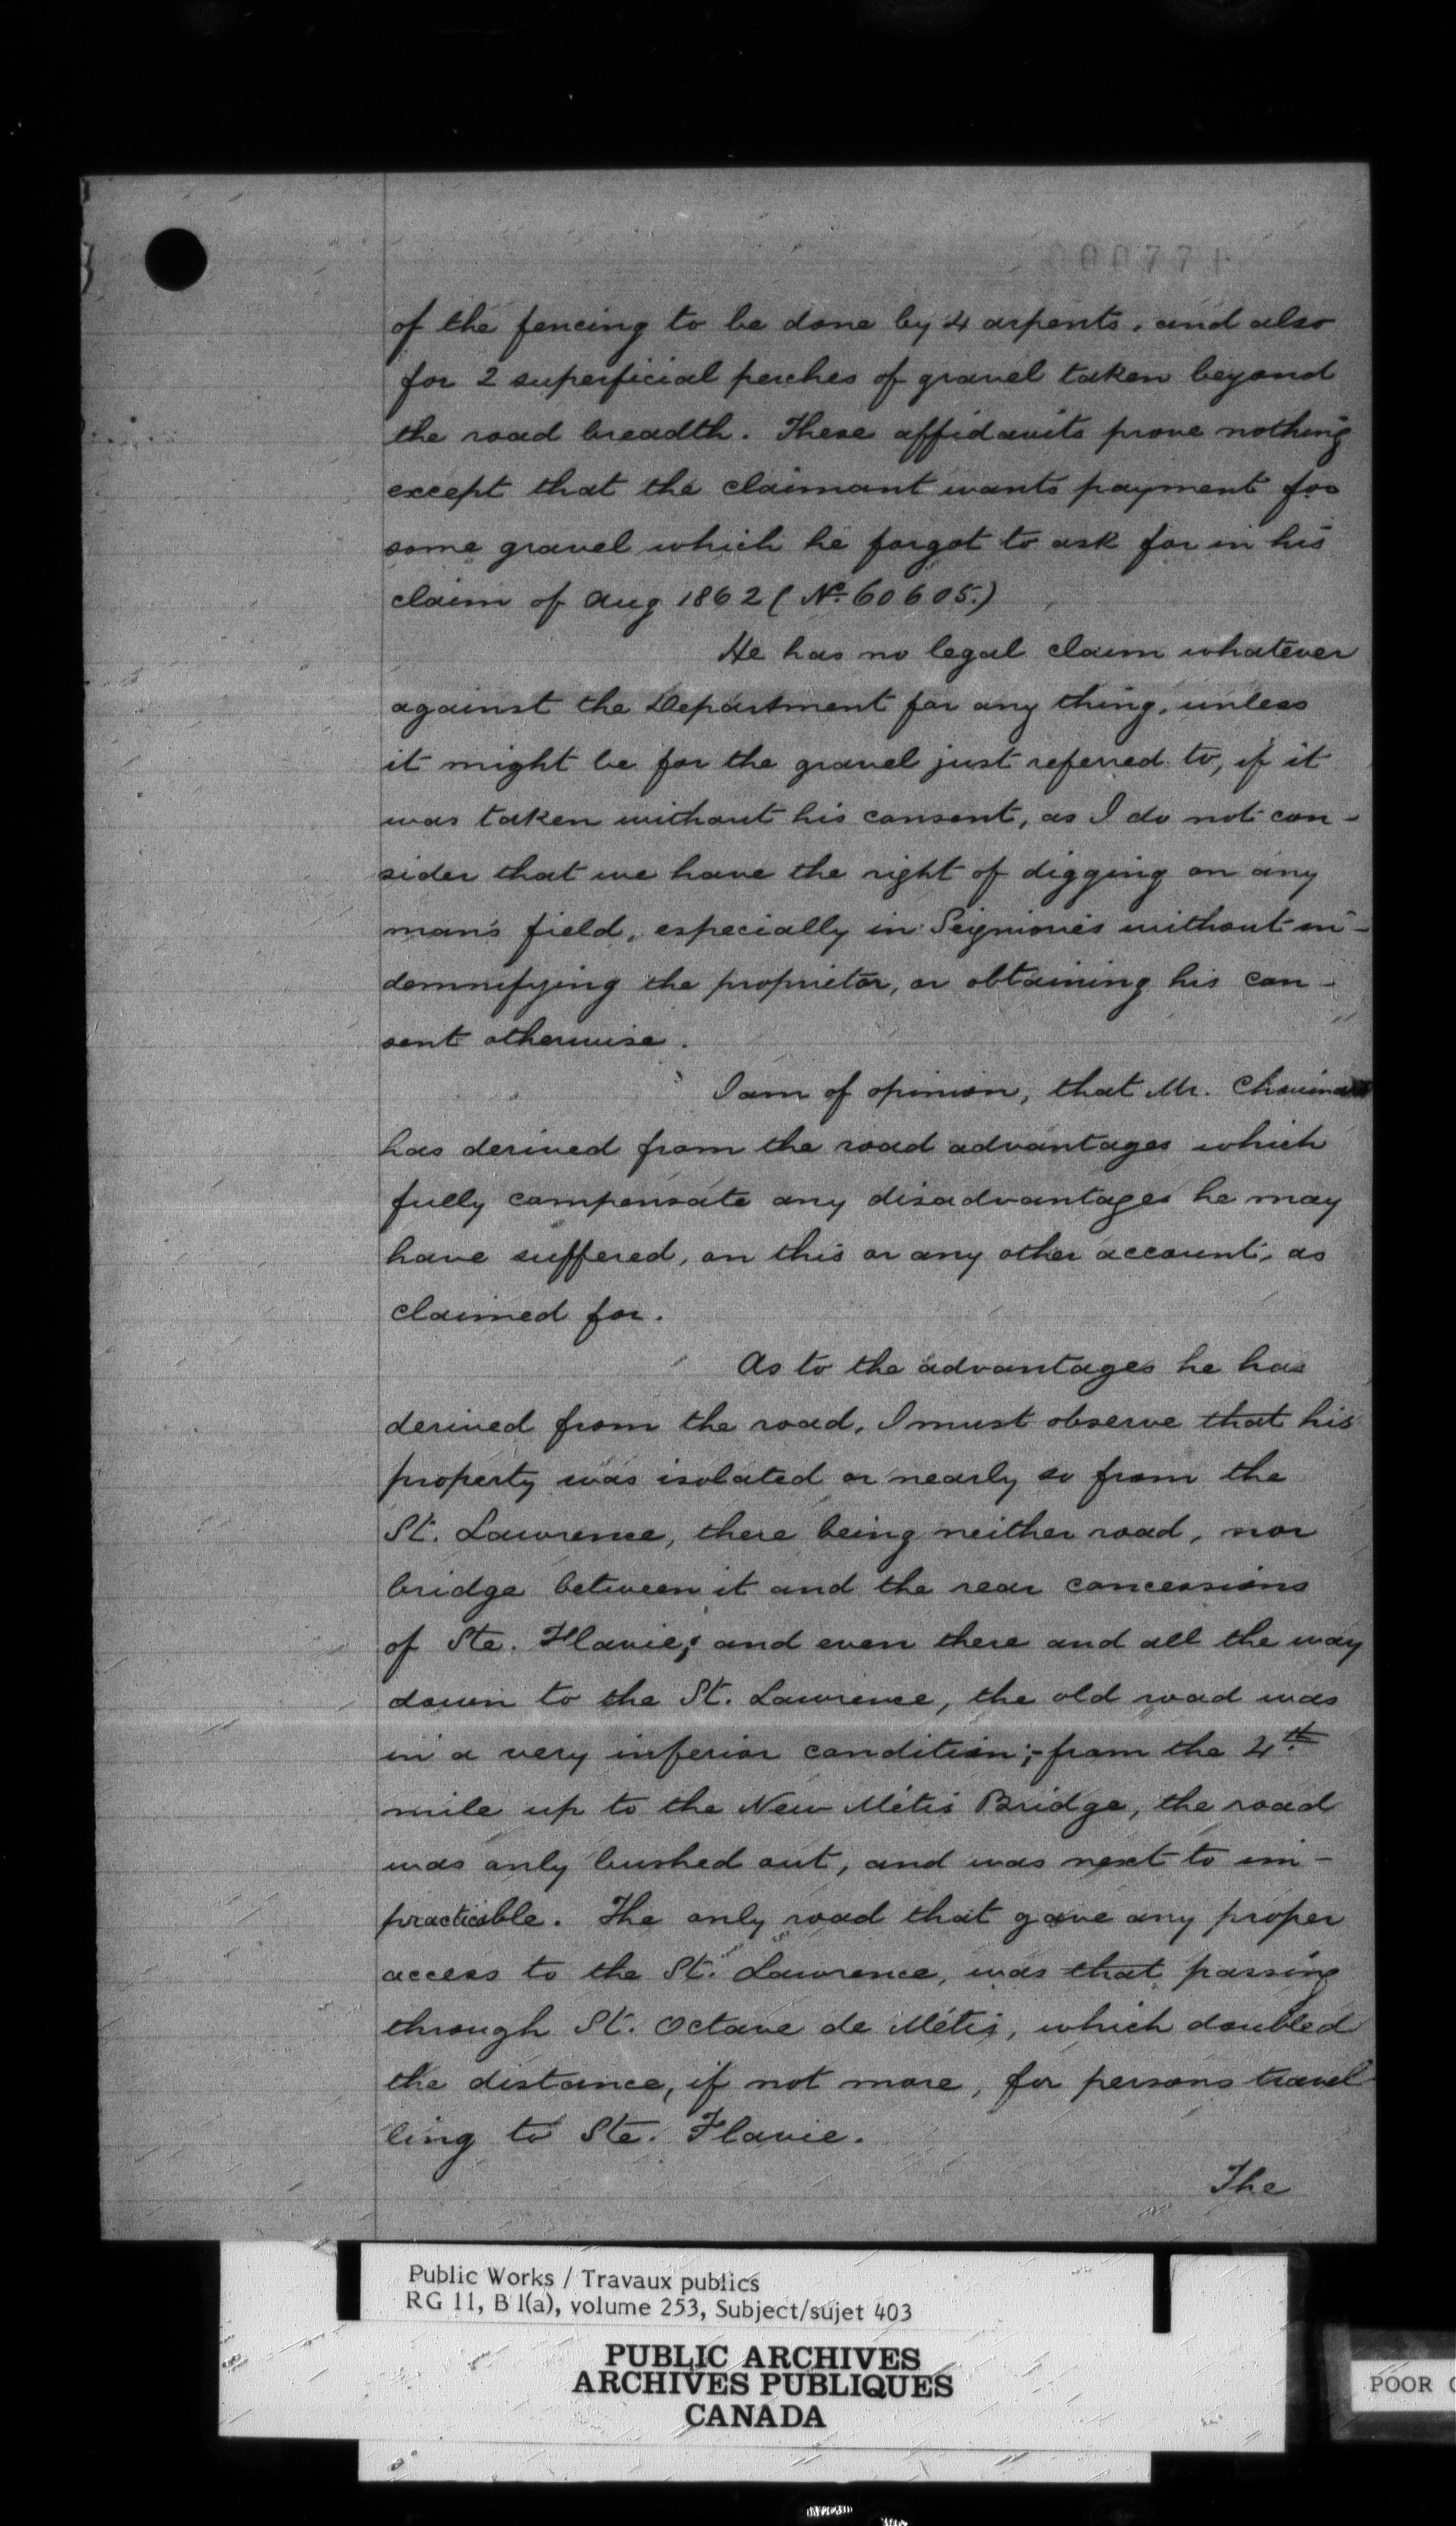 000771
of the fencing to be done by 4 arpents, and also
for 2 superficial perches of gravel taken beyond
the road breadth. These affidavits prove nothing
except that the claimant wants payment for
some gravel which he forgot to ask for in his
claim of Aug 1862 (No. 60605.)
He has no legal claim whatever
against the Department for any thing, unless
it might be for the gravel just referred to, if it
was taken without his consent, as I do not con-
sider that we have the right of digging on any
man's field, especially in Seigniories without in-
demnifying the proprietor, or obtaining his con-
sent otherwise.
I am of opinion, that Mr. Chouinard
has derived from the road advantages which
fully compensate any disadvantages he may
have suffered, on this or any other account, as
claimed for.
As to the advantages he has
derived from the road, I must observe that his
property was isolated or nearly so from the
St. Lawrence, there being neither road, nor
bridge between it and the rear concessions
of Ste. Flavie; and even there and all the way
down to the St. Lawrence, the old road was
in a very inferior condition;- from the 4th
mile up to the New Métis Bridge, the road
was only bushed out, and was next to im-
practicable. The only road that gave any proper
access to the St. Lawrence, was that passing
through St. Octave de Métis, which doubled
the distance, if not more, for persons travel
ling to Ste. Flavie.
The
Public Works / Travaux publics
RG 11, B 1(a), volume 253, Subject/sujet 403
PUBLIC ARCHIVES
ARCHIVES PUBLIQUES
CANADA
POOR